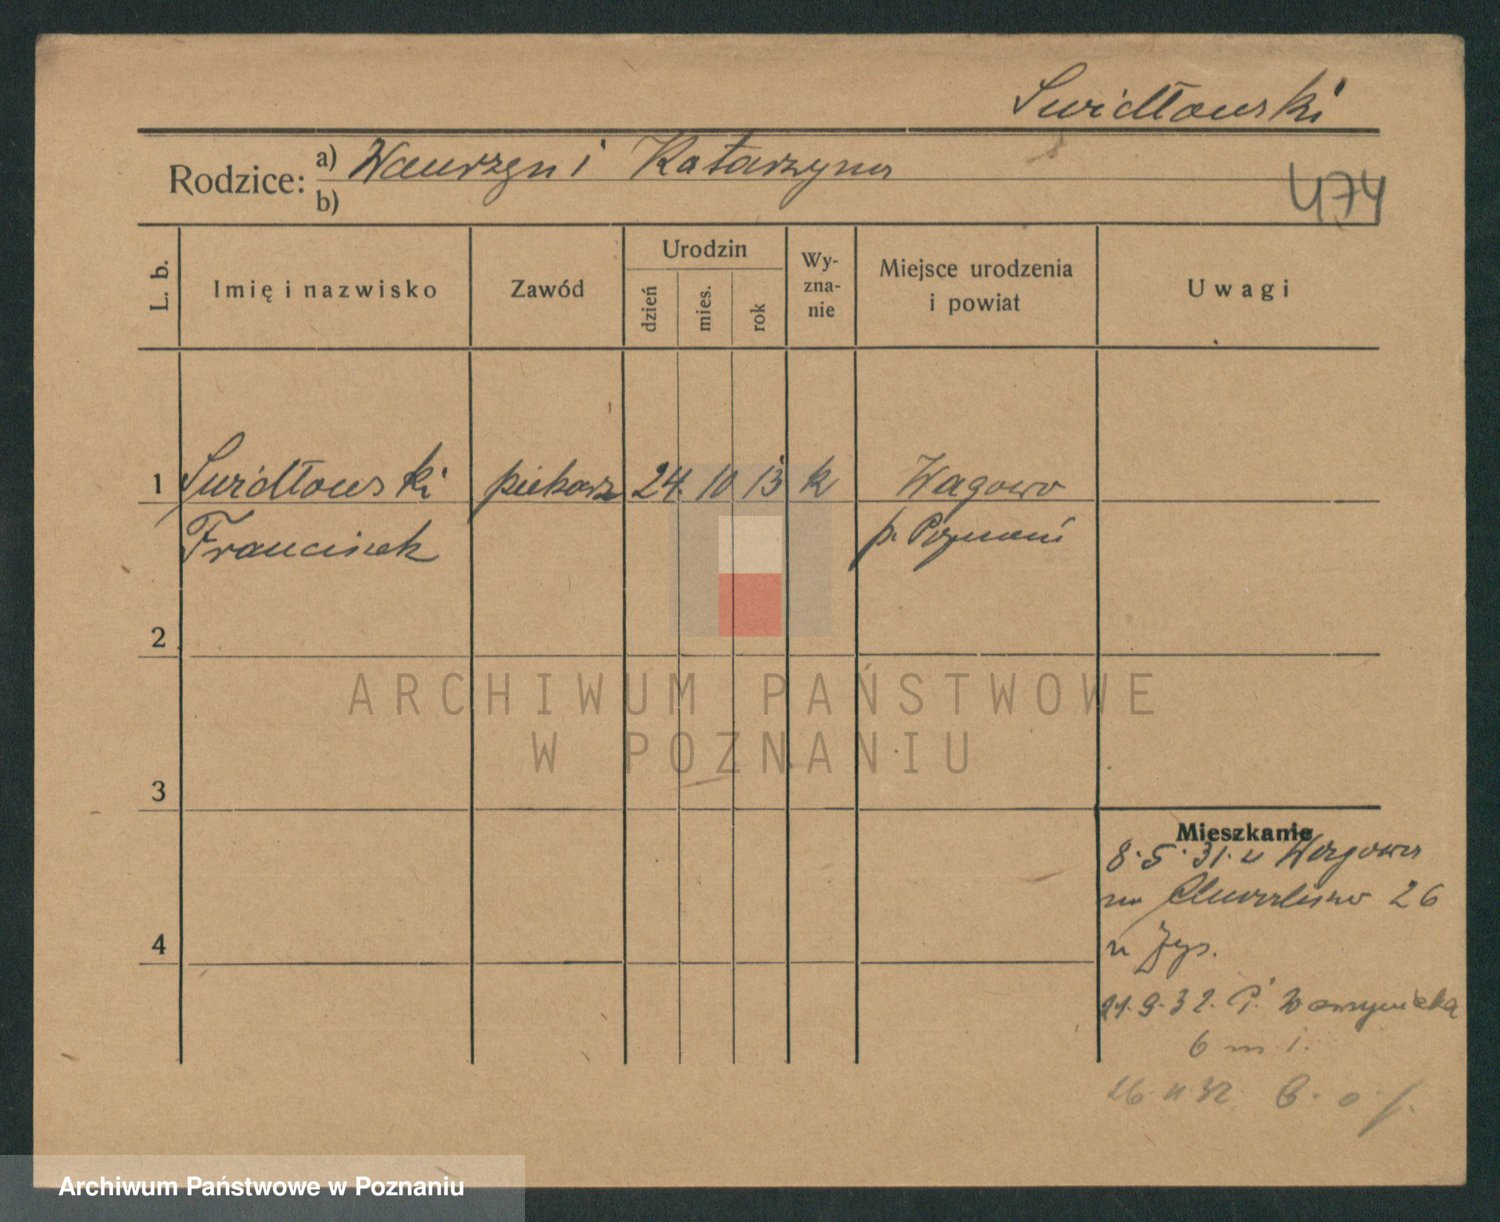 Swidłowski
Rodzice: a) Wawrzyn i Katarzyna
b)
474
L. b.
Imię i nazwisko
Zawód
Urodzin
dzień
mies.
rok
Wy-
zna-
nie
Miejsce urodzenia
i powiat
Uwagi
1 Swidłowski piekarz 24 10 13 k Wagowo
Franciszek p. Poznań
2
3
4
Mieszkanie
8.5.31. z Wagowa
na 26
u
9.32. P. Wawrzyniaka
6 m 1.
26.11.32
ARCHIWUM PAŃSTWOWE
W POZNANIU
Archiwum Państwowe w Poznaniu